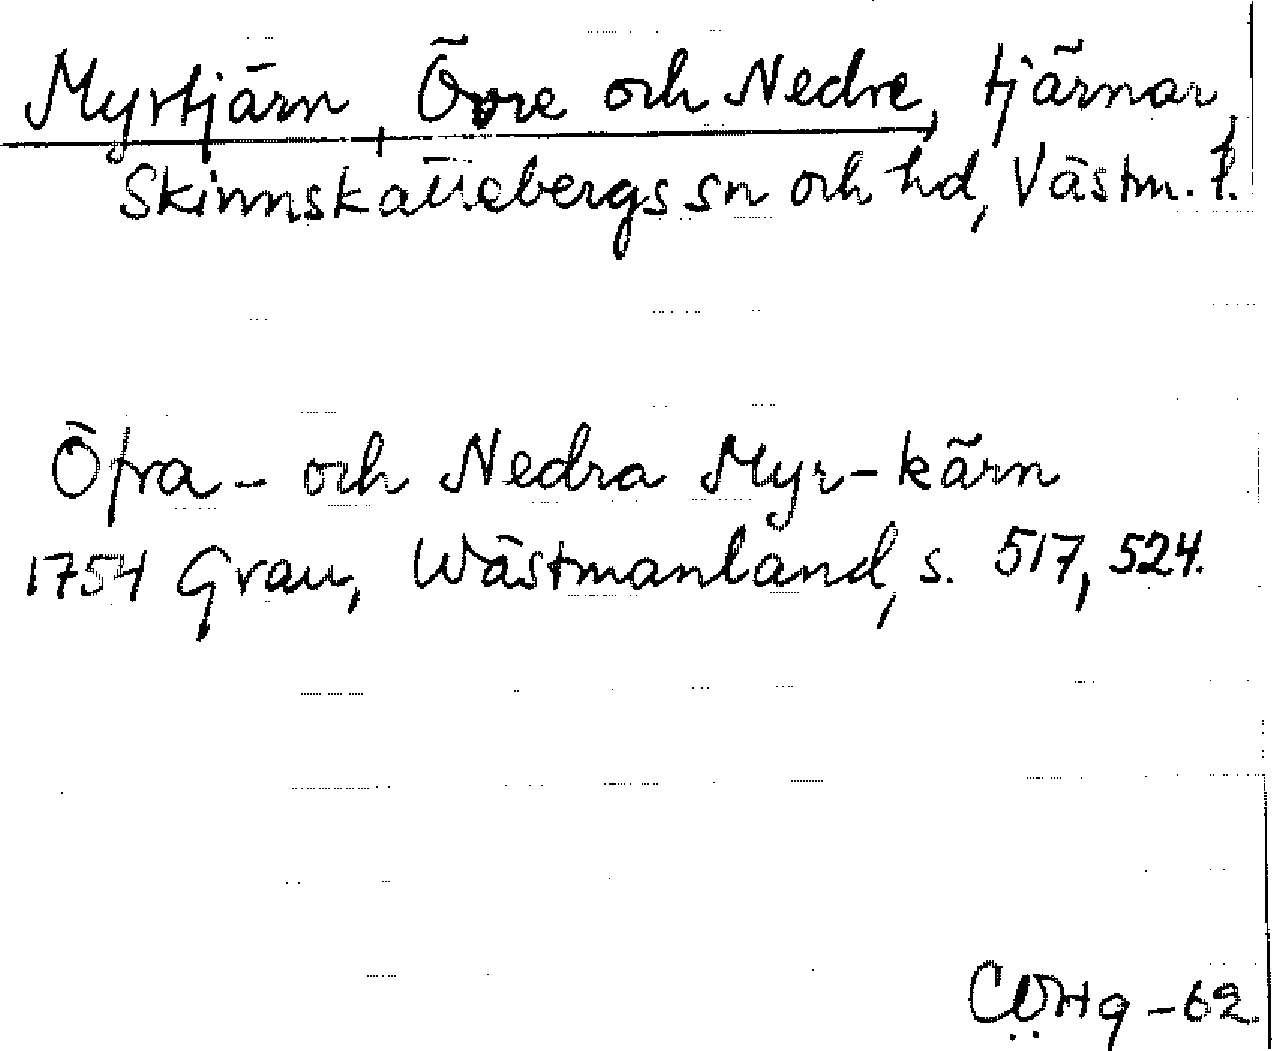 Myrtjärn, Övre och Nedre, tjärnar,
Skinnskattebergs sn och hd, Västm. l.
Öfra - och Nedra Myr-kärn
1754 Grau, Wästmanland, s. 517, 524.
-62